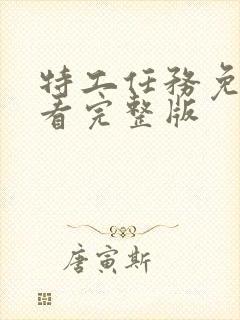 特工任务免
看完整版
唐寅斯